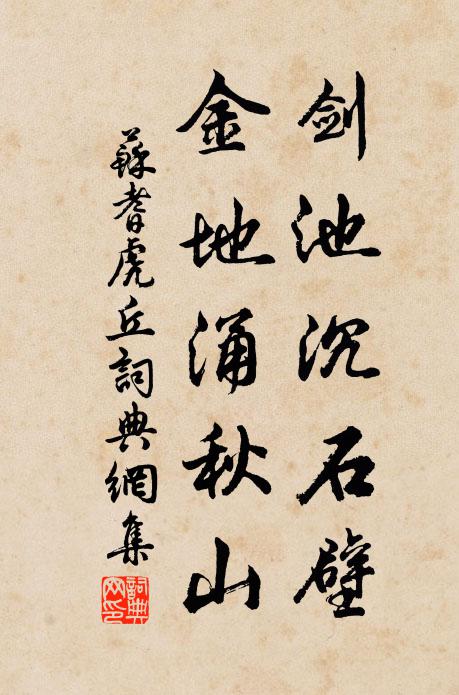 剑池沉石壁
金地涌秋山
蘇耆虎丘詞典網集
詞典网印